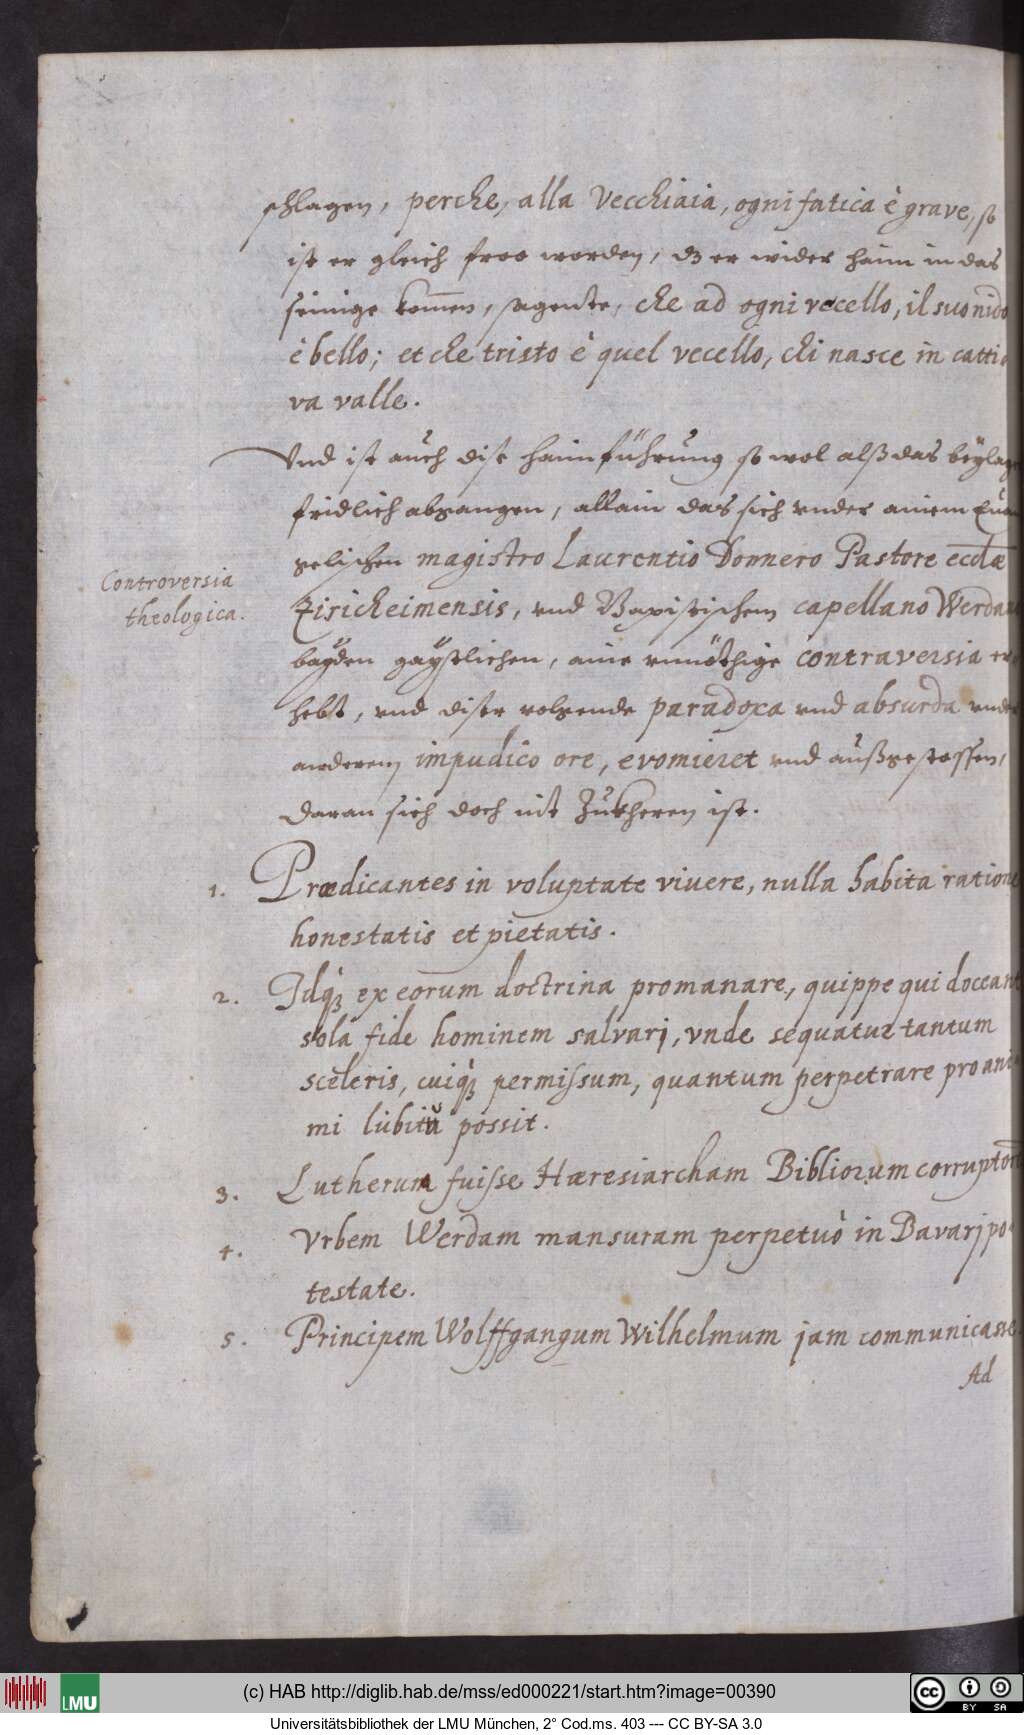 schlagen, perche, alla Vecchiaia, ogni fatica è grave, so
ist er gleich froo worden, dz er wider haim in das
seinige kom̄en, sagende, che ad ogni vecello, il suo nido
è bello; et che tristo è quel vecello, chi nasce in catti
va valle.
Vnd ist auch dise haimführung so wol alß das beÿlag
fridlich abgangen, allain das sich vnder ainem Eua
gelischen magistro Laurentio Donnero Pastore eccłæ
Controversia
theologica.
Ziricheimensis, vnd Bapistischem capellano Werdan
bayden gaÿstlichen, aine vnnöthige contraversia er
hebt, vnd diser volgende paradoxa vnd absurda vnder
anderem impudico ore, evomieret vnd außgestossen,
daran sich doch nit Zukheren ist.
1. Prædicantes in voluptate viuere, nulla habita ratione
honestatis et pietatis.
2. Idq́ꝫ ex eorum doctrina promanare, quippe qui doceant
sola fide hominem salvarj, vnde sequatur tantum
sceleris, cuiq́ꝫ permissum, quantum perpetrare pro ani
mi lubitu possit.
3. Lutherum fuisse Hæresiarcham Bibliorum corruptorē
4. Vrbem Werdam mansuram perpetuò in Bavarj po-
testate.
5. Principem Wolffgangum Wilhelmum jam communicasse
Ad
(c) HAB http://diglib.hab.de/mss/ed000221/start.htm?image=00390
Universitätsbibliothek der LMU München, 2° Cod.ms. 403 --- CC BY-SA 3.0
LMU
cc BY SA